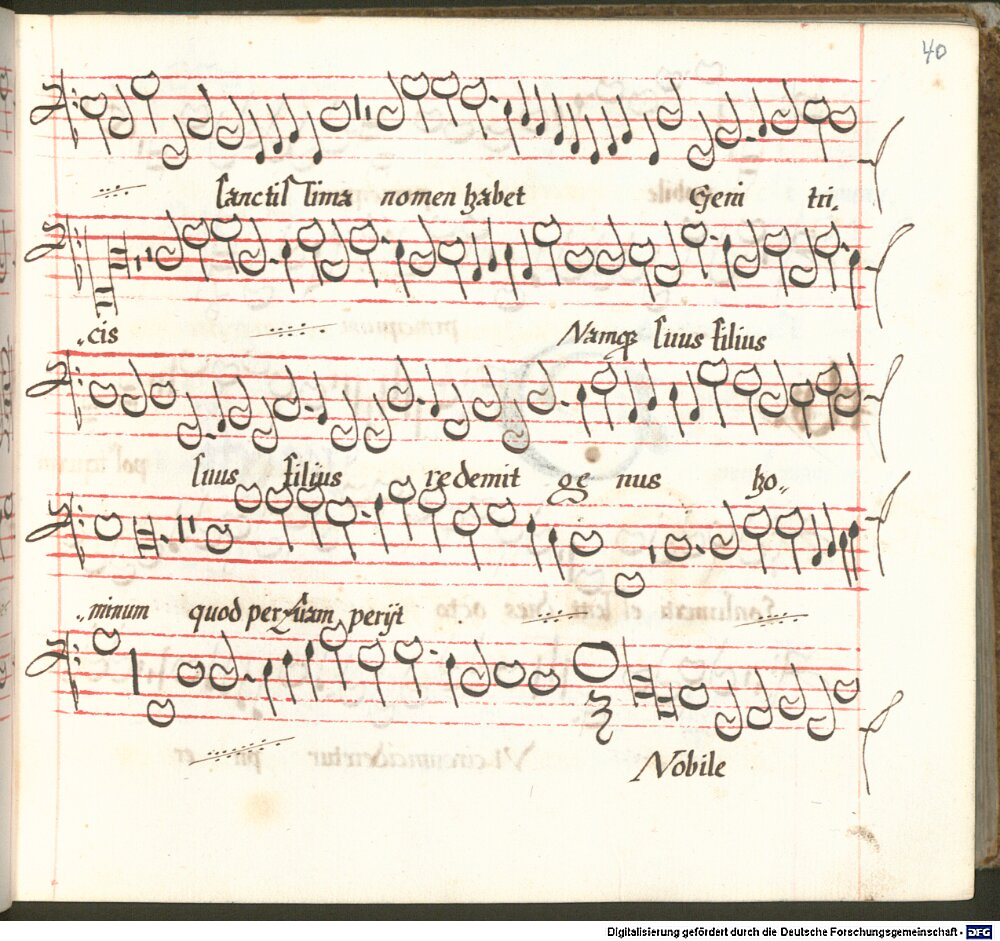 40
sanctis sima nomen habet Geni tri,
,,cis Namqȝ suus filius
suus filijus redemit ge nus ho,,
,,minum quod perijt
Nobile
Digitalisierung gefördert durch die Deutsche Forschungsgemeinschaft - DFG